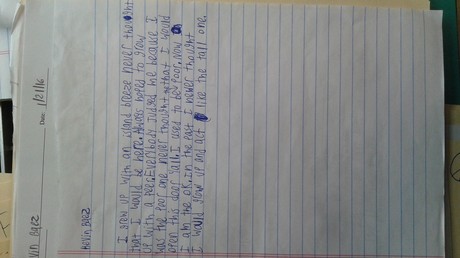 Date: 1/21/16
vin Baez
Kevin Baez
I grow up with an island breeze never thought
that I would be here. Always hoped to grow
up with a peer. Everybody Judged me because I
was the poor one never thought that I would
open this door Yall. I used to be Poor. Now
I am the ok. In the past I never thought
I would grow up and act like the tall one.